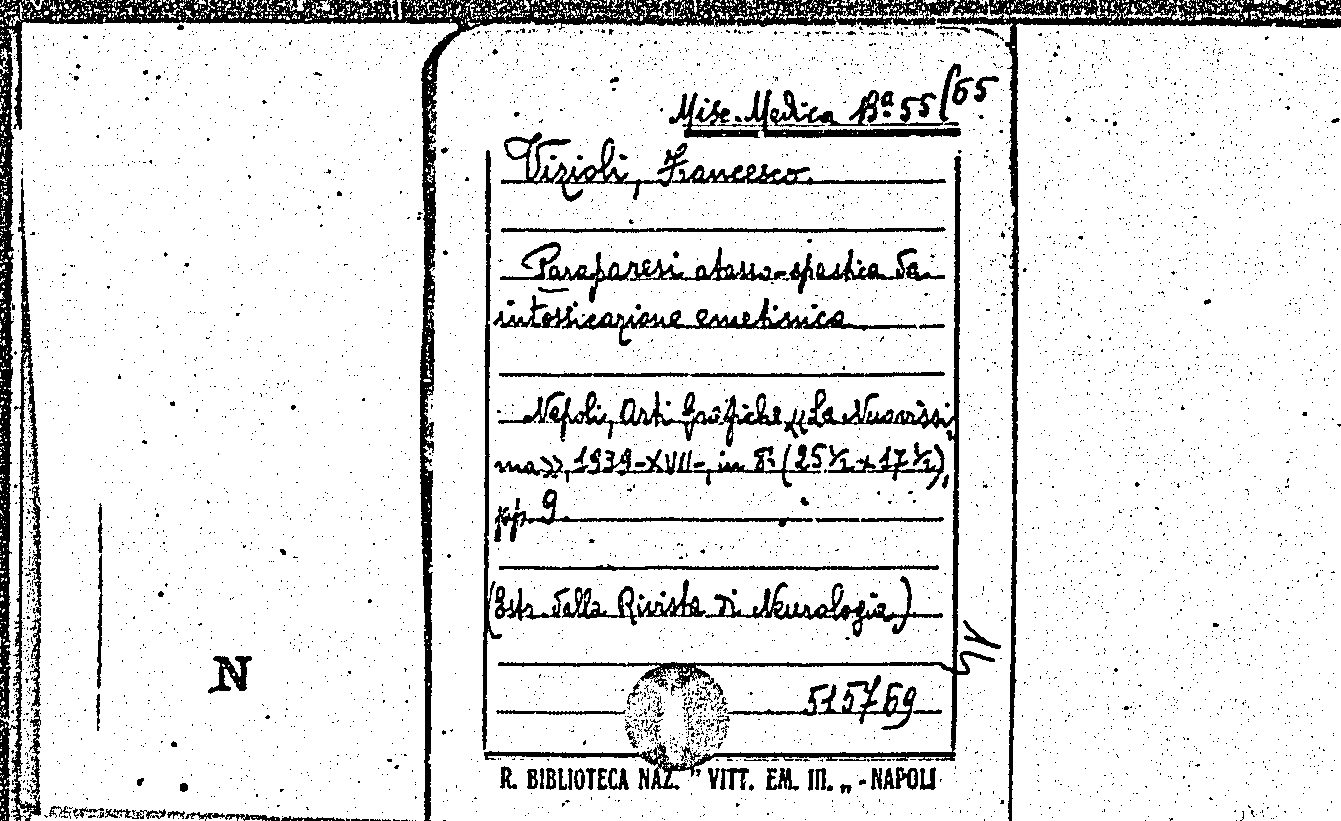 Misc. Medica Bª 55/65
Vizioli, Francesco.
Paraparesi atasso-spastica da
intossicazione emetinica
Napoli, Arti Grafiche «La Nuovissi
ma», 1939-XVII-, in 8º (25½ x 17½),
pp. 9.
(Estr. dalla Rivista di Neurologia)
515769
N
R. BIBLIOTECA NAZ. " VITT. EM. III. „ - NAPOLI